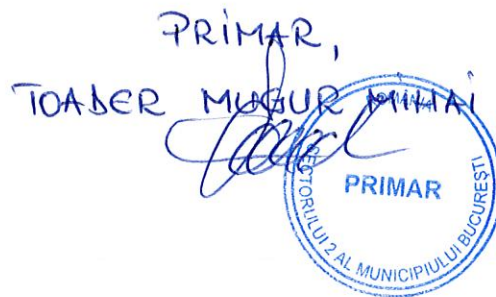 PRIMAR,
TOADER MUGUR MIHAI
ROMANIA
PRIMAR
SECTORULUI 2 AL MUNICIPIULUI BUCUREȘTI